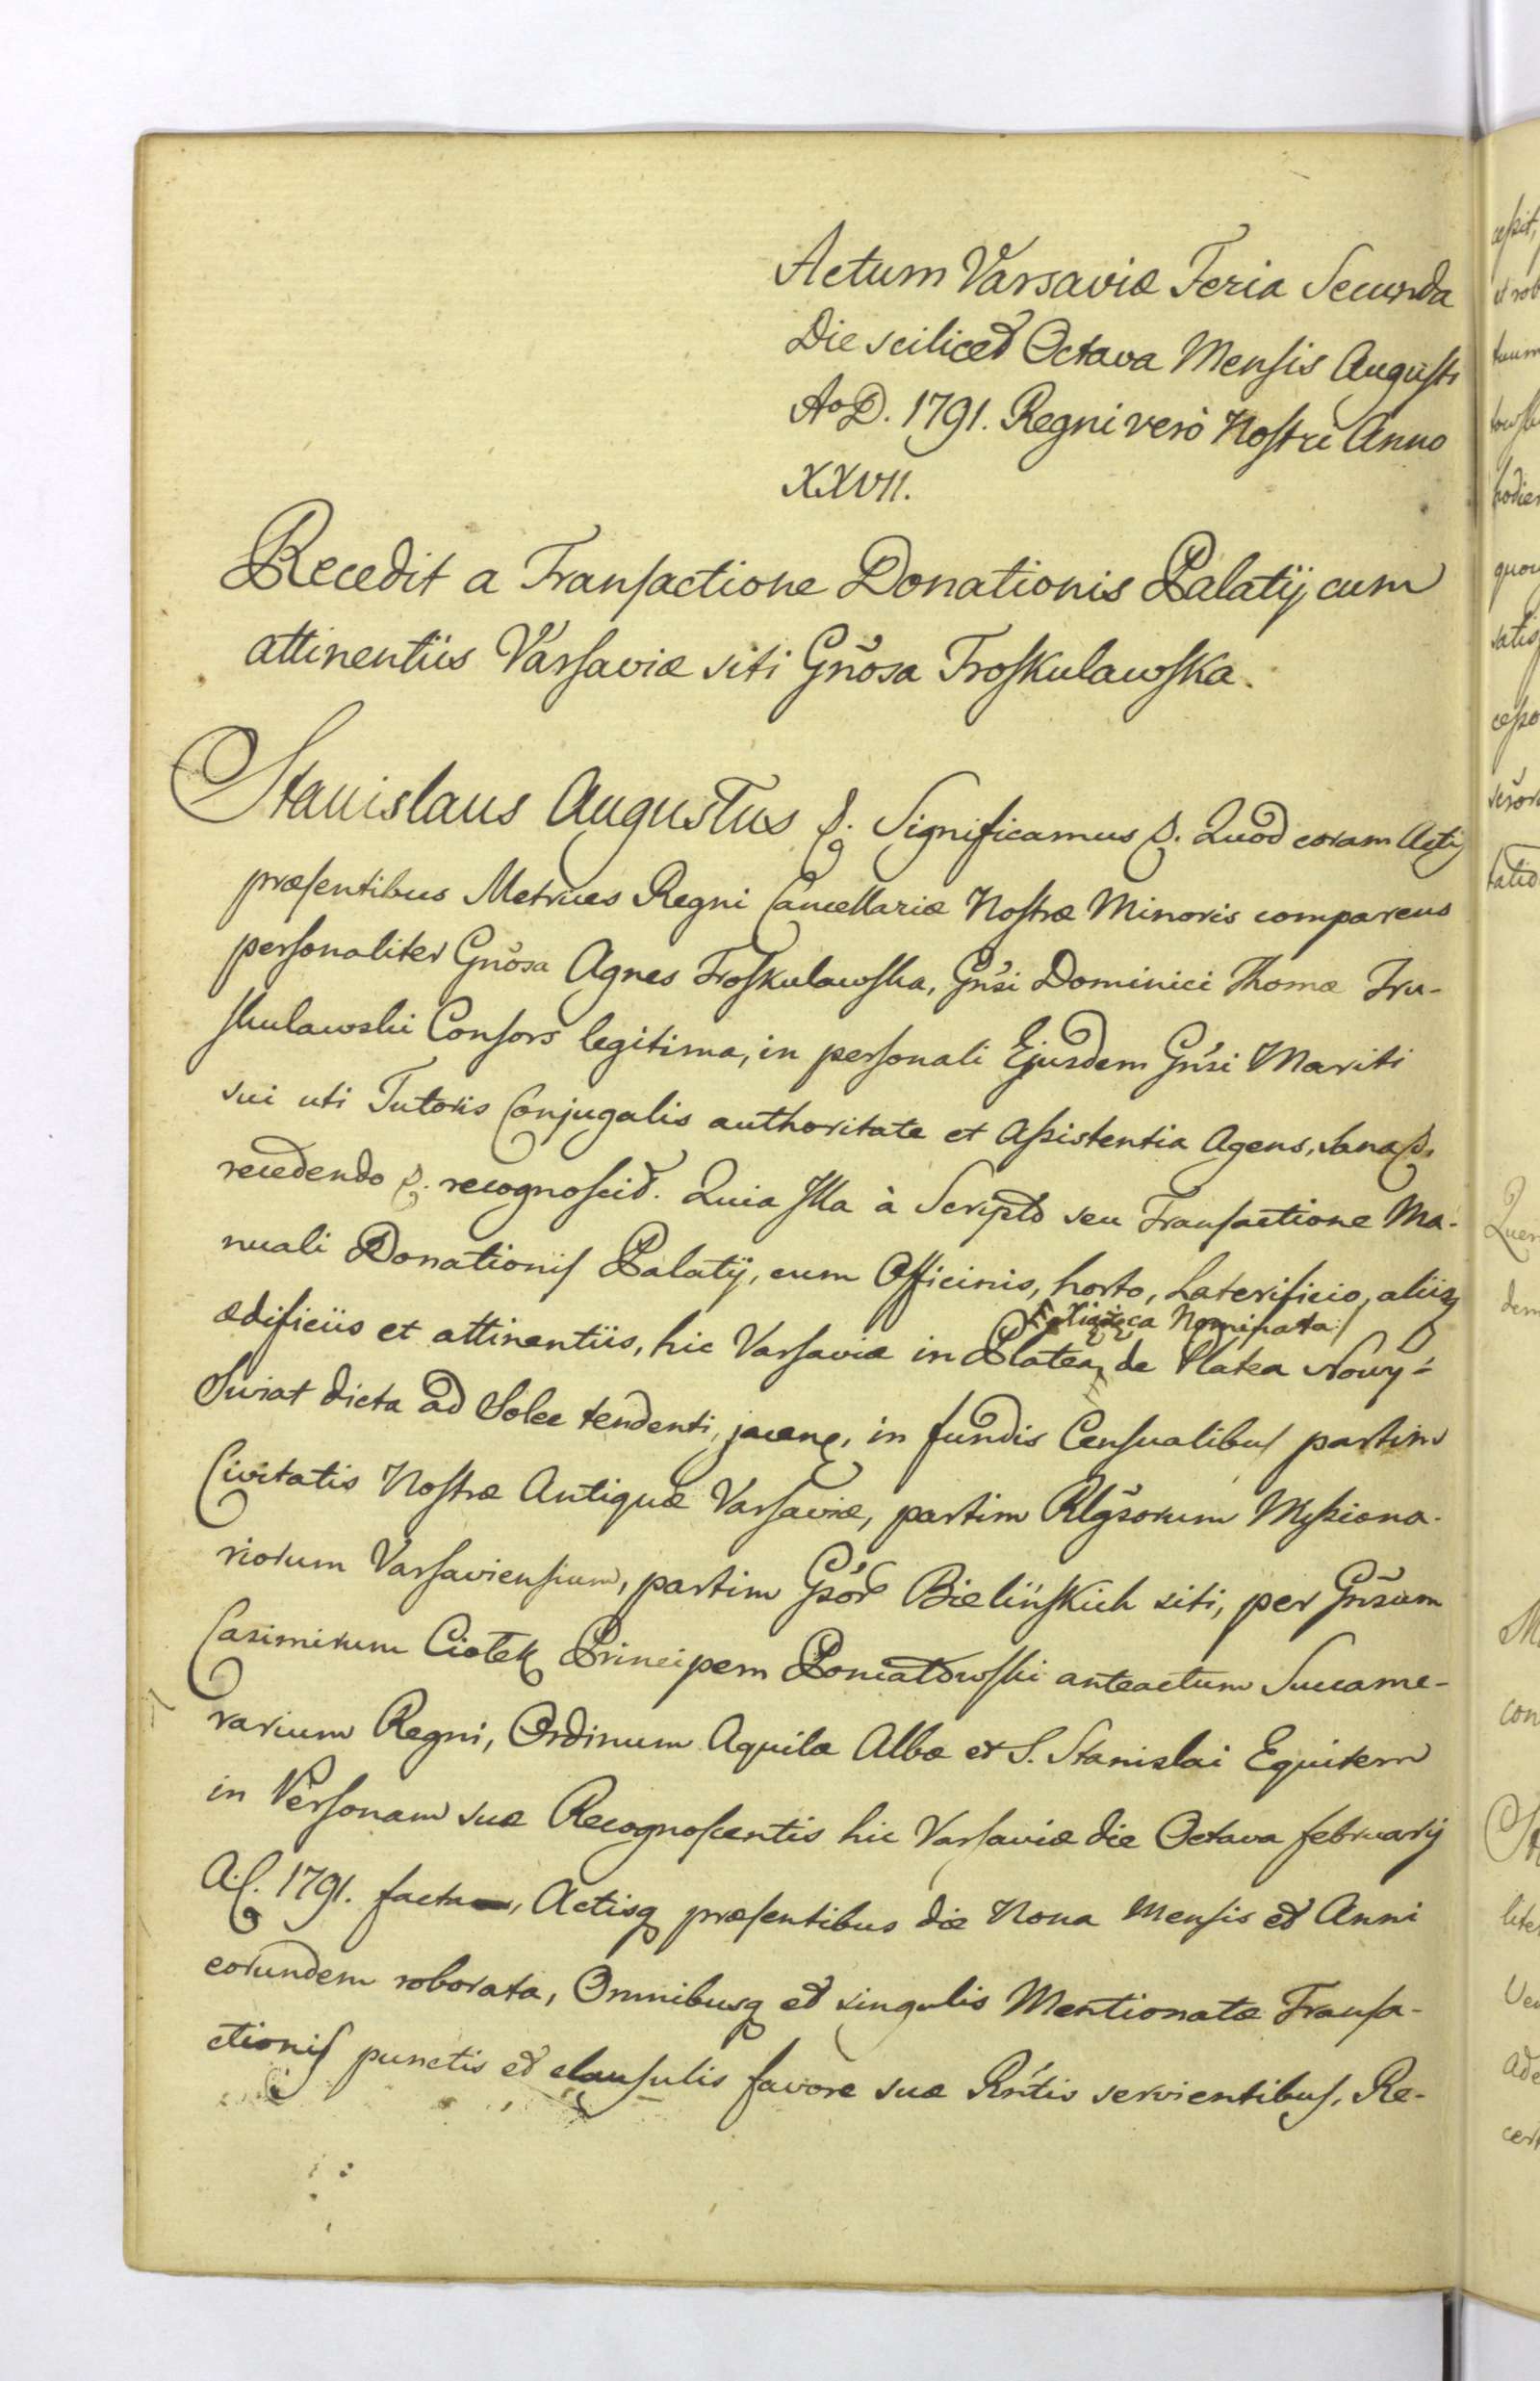 Actum Varsaviæ Feria Secunda
Die scilicet Octava Mensis Augusti
Ao D. 1791. Regni verò Nostri Anno
XXVII.
Recedit a Transactione Donationis Palatij cum
attinentiis Varsaviæ siti Gnosa Troskulawska.
Stanislaus Augustus &. Significamus &. Quod coram Actis
præsentibus Metrices Regni Cancellariæ Nostræ Minoris comparens
personaliter Gnosa Agnes Troskulawska, Gnsi Dominici Thomæ Tru-
skulawski Consors legitima, in personali Ejusdem Gnsi Mariti
sui uti Tutoris Conjugalis authoritate et Assistentia Agens, sana &.
recedendo &. recognoscit. Quia Illa à Scripto seu Transactione Ma-
nuali Donationis Palatij, cum Officinis, horto, Laterificio, aliisq
ædificiis et attinentiis, hic Varsaviæ in Platea de Platea Nowy=
Xiążęca Nominata
Swiat dicta ad Solec tendenti, jacen, in fundis Censualibus partim
Civitatis Nostræ Antiquæ Varsaviæ, partim Rlgsorum Missiona-
riorum Varsaviensium, partim Gsór Bielińskich siti, per Gnsum
Casimirum Ciołek Principem Poniatowski anteactum Succame-
rarium Regni, Ordinum Aquilæ Albæ et S. Stanislai Equitem
in Personam suæ Recognoscentis hic Varsaviæ die Octava februarij
A.C. 1791. facta, Actisq præsentibus die Nona Mensis et Anni
eorundem roborata, Omnibusq et singulis Mentionatæ Transa-
ctionis punctis et clausulis favore suæ Rntis servientibus, Re-